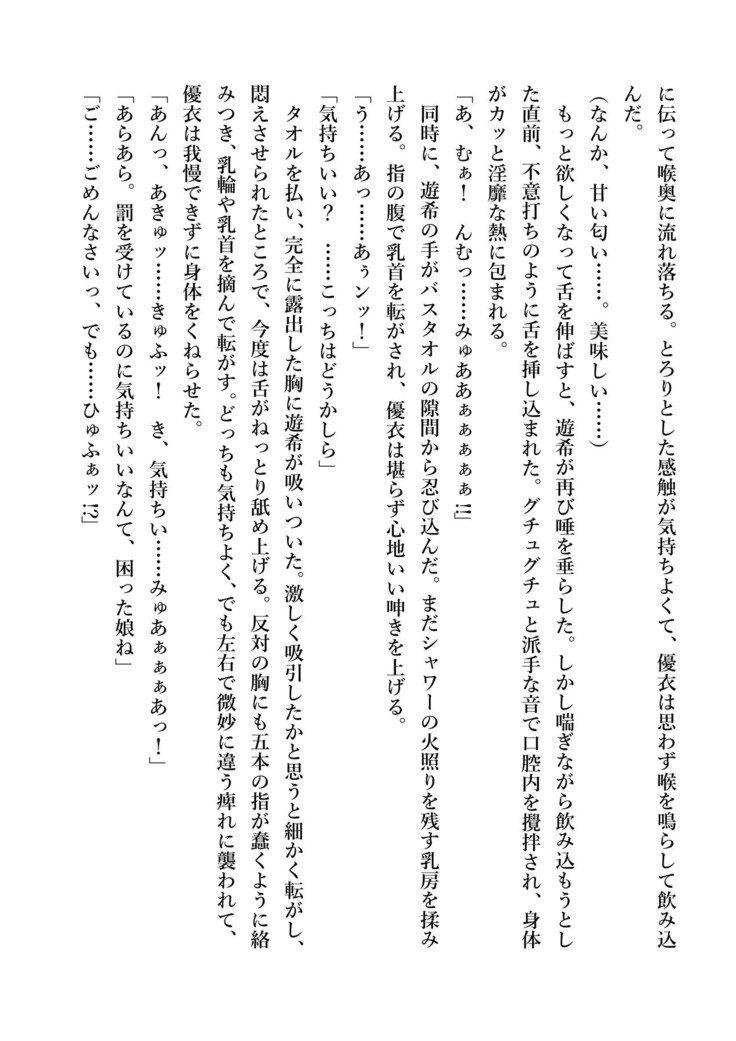 に伝って喉奥に流れ落ちる。とろりとした感触が気持ちよくて、優衣は思わず喉を鳴らして飲み込
んだ。
(なんか、甘い匂い……。美味しい……)
もっと欲しくなって舌を伸ばすと、遊希が再び唾を垂らした。しかし喘ぎながら飲み込もうとし
た直前、不意打ちのように舌を挿し込まれた。グチュグチュと派手な音で口腔内を攪拌され、身体
がカッと淫靡な熱に包まれる。
「あ、むぁ!　んむっ……みゅああぁぁぁぁぁ!!」
同時に、遊希の手がバスタオルの隙間から忍び込んだ。まだシャワーの火照りを残す乳房を揉み
上げる。指の腹で乳首を転がされ、優衣は堪らず心地いい呻きを上げる。
「う……あっ……あぅンッ!」
「気持ちいい?　……こっちはどうかしら」
タオルを払い、完全に露出した胸に遊希が吸いついた。激しく吸引したかと思うと細かく転がし、
悶えさせられたところで、今度は舌がねっとり舐め上げる。反対の胸にも五本の指が蠢くように絡
みつき、乳輪や乳首を摘んで転がす。どっちも気持ちよく、でも左右で微妙に違う痺れに襲われて、
優衣は我慢できずに身体をくねらせた。
「あんっ、あきゅッ……きゅふッ!　き、気持ちい……みゅあぁぁぁあっ!」
「あらあら。罰を受けているのに気持ちいいなんて、困った娘ね」
「ご……ごめんなさいっ、でも……ひゅふぁッ!?」